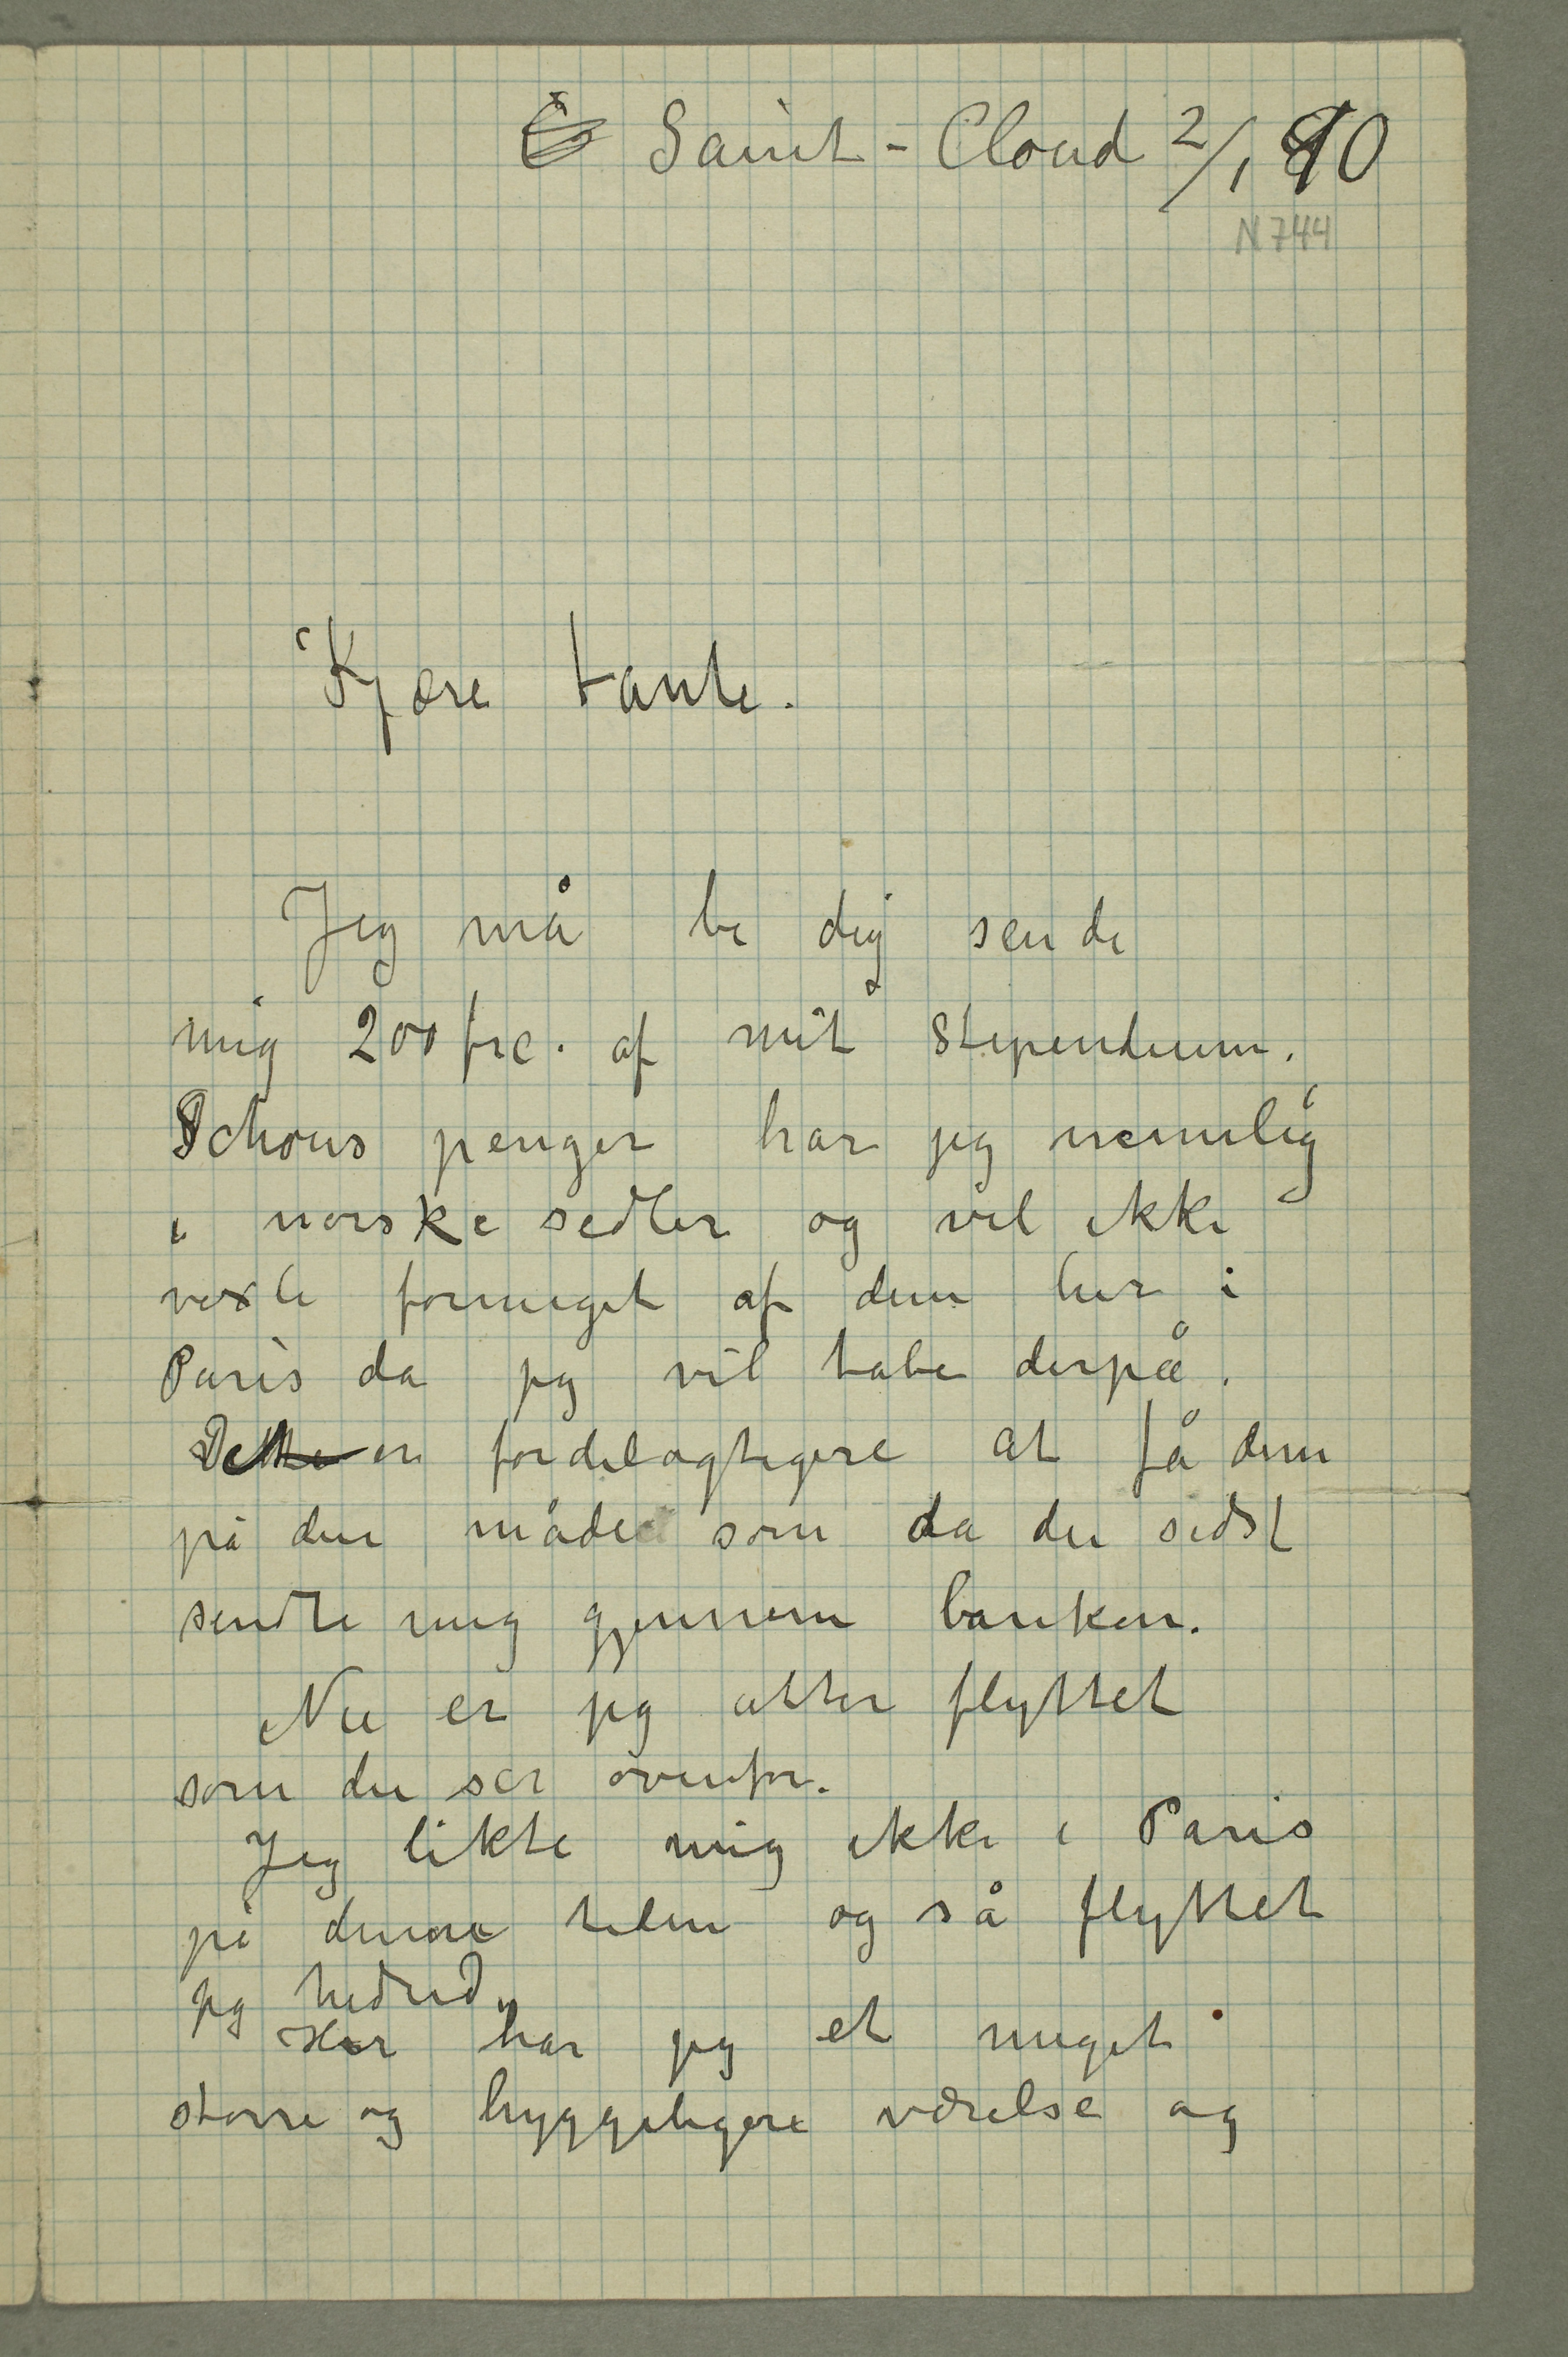 Saint-Cloud 2/1 90
N 744
Kjære tante.
Jeg må be dig sende
mig 200 frc. af mit Stipendium.
Schous penger har jeg nemmlig
i norske sedler og vil ikke
vexle formeget af dem her i
Paris da jeg vil tabe derpå.
Dette er fordelagtigere at få dem
på den måde som da du sidst
sendte mig gjennem banken.
Nu er jeg atter flyttet
som du ser ovenfor.
Jeg likte mig ikke i Paris
på denne tiden og så flyttet
jeg hedud.
Her har jeg et meget
større og hyggeligere værelse og